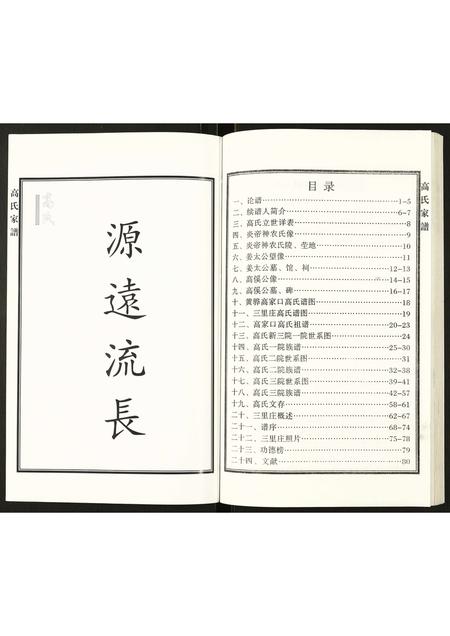 高氏家譜
源遠流長
目录
一、论谱……1-5
二、续谱人简介……6-7
三、高氏立世译表……8
四、炎帝神农氏像……9
五、炎帝神农氏陵、茔地……10
六、姜太公望像……11
七、姜太公墓、馆、祠……12-13
八、高傒公像……14-15
九、高傒公墓、碑……16-17
十、黄骅高家口高氏谱图……18
十一、三里庄高氏谱图……19
十二、高家口高氏祖谱……20-23
十三、高氏新三院一院世系图……24
十四、高氏一院族谱……25-30
十五、高氏二院世系图……31
十六、高氏二院族谱……32-38
十七、高氏三院世系图……39-41
十八、高氏三院族谱……42-57
十九、高氏文存……58-61
二十、三里庄概述……62-67
二十一、谱序……68-74
二十二、三里庄照片……75-78
二十三、功德榜……79
二十四、文献……80
高氏家譜